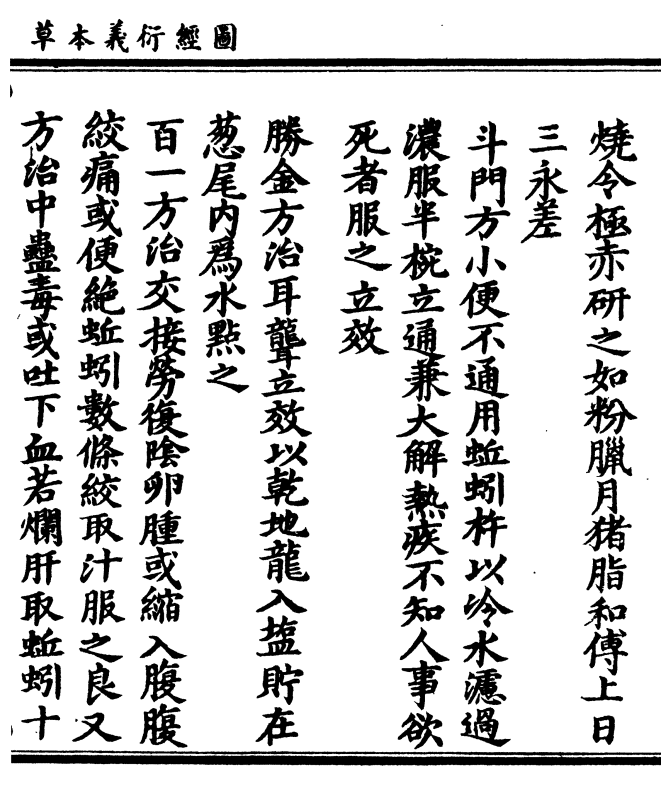 圖經衍義本草
燒令極赤研之如粉臘月猪脂和傅上日
三永差
斗門方小便不通用蚯蚓杵以冷水濾過
濃服半椀立通兼大解熱疾不知人事欲
死者服之立效
勝金方治耳聾立效以乾地龍入塩貯在
葱尾内爲水點之
百一方治交接勞復陰卵腫或縮入腹腹
絞痛或便絕蚯蚓數條絞取汁服之良又
方治中蠱毒或吐下血若爛肝取蚯蚓十